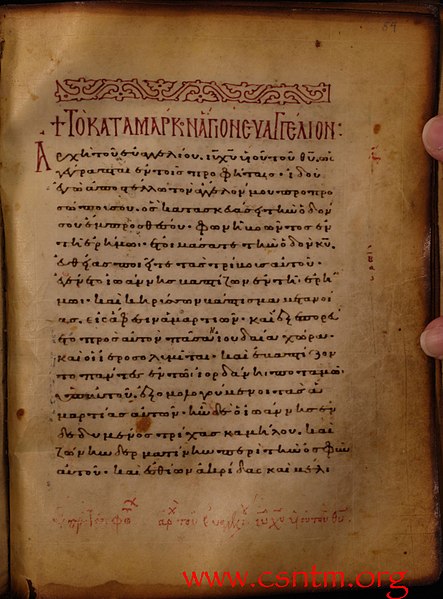 +ΤΟ ΚΑΤΑ ΜΑΡΚΟΝ ΑΓΙΟΝ ΕΥΑΓΓΕΛΙΟΝ:
Ἀρχὴ τοῦ εὐαγγελίου ιυ χυ υἱοῦ τοῦ θυ. ὡς
γέγραπται ἐν τοῖς προφήταις· ἰδοὺ
ἐγὼ ἀποστέλλω τὸν ἄγγελόν μου πρὸ προ
σώπου σου. ὃς κατασκευάσει τὴν ὁδόν
σου ἔμπροσθέν σου· φωνὴ βοῶντος ἐν
τῇ ἐρήμω· ἑτοιμάσατε τὴν ὁδὸν κυ.
εὐθείας ποιεῖτε τὰς τρίβους αὐτοῦ·
ἐγένετο ἰωάννης βαπτίζων ἐν τῇ ἐρή
μω· καὶ κηρύσσων βάπτισμα μετανοί
ας, εἰς ἄφεσιν ἁμαρτιῶν· καὶ ἐξεπορεύ
ετο πρὸς αὐτὸν πᾶσα ἡ ἰουδαία χώρα·
καὶ οἱ ἱεροσολυμῖται· καὶ ἐβαπτίζον
το πάντες ἐν τῶ ἰορδάνη ποταμῶ
ὑπ' αὐτοῦ. ἐξομολογούμενοι τὰς ἁ
μαρτίας αὐτῶν· ἦν δὲ ὁ ἰωάννης ἐν
δεδυμένος τρίχας καμήλου. καὶ
ζώνην δερματίνην περὶ τὴν ὀσφὺν
αὐτοῦ· καὶ ἐσθίων ἀκρίδας καὶ μέλι
ἀρχ τοῦ εὐαγγελ ιυ χυ υἱοῦ τοῦ θυ
www.csntm.org